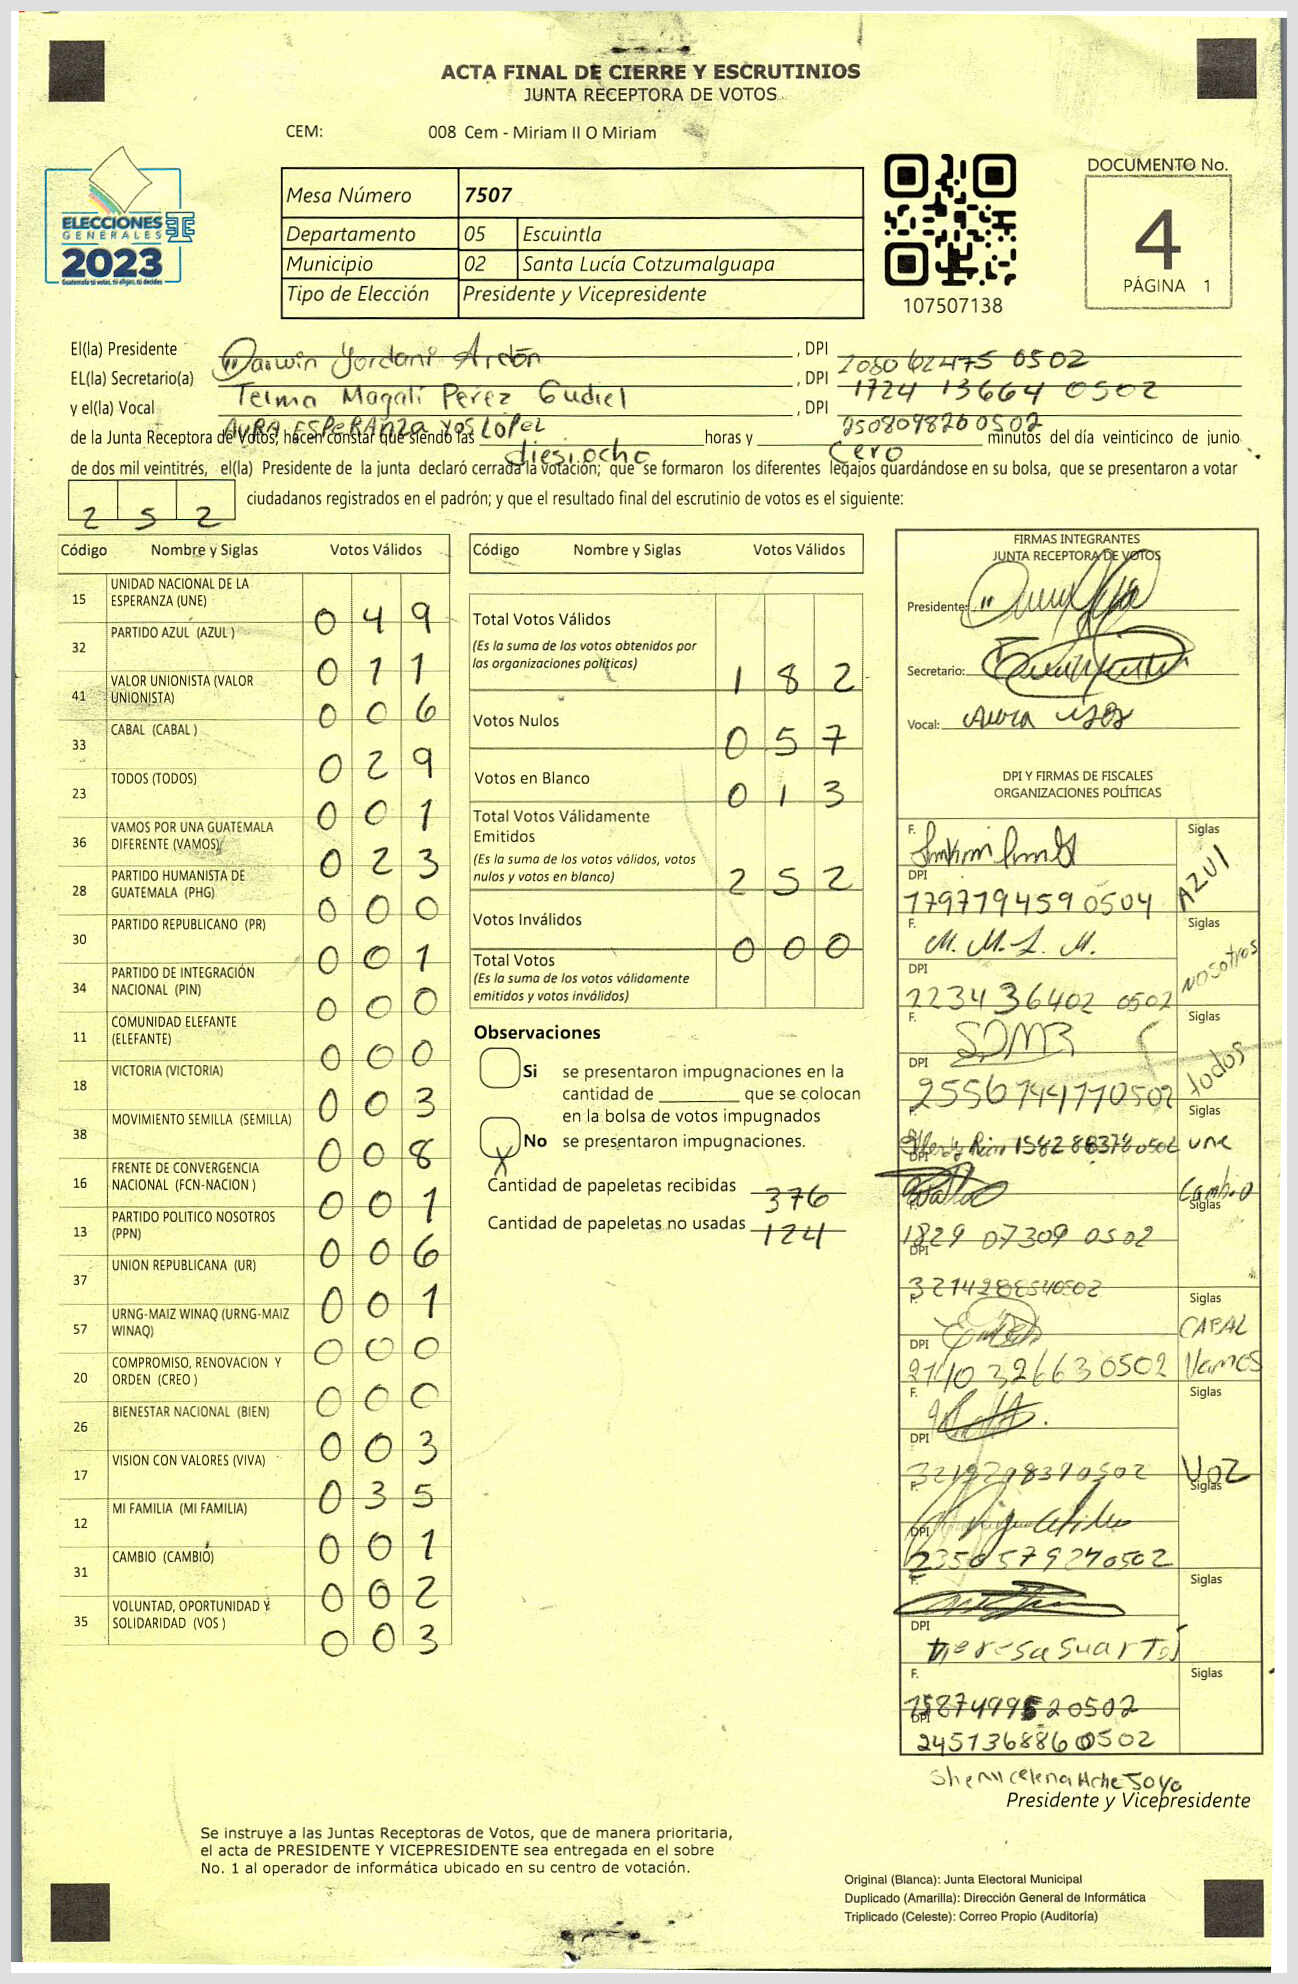 ACTA FINAL DE CIERRE Y ESCRUTINIOS
JUNTA RECEPTORA DE VOTOS
CEM: 008 Cem - Miriam II O Miriam
ELECCIONES
GENERALES
2023
Guatemala tú votas, tú eliges, tú decides
Mesa Número 7507
Departamento 05 Escuintla
Municipio 02 Santa Lucía Cotzumalguapa
Tipo de Elección Presidente y Vicepresidente
107507138
DOCUMENTO No.
4
PÁGINA 1
El(la) Presidente Darwin Yordani Ardón , DPI 2080 62475 0502
EL(la) Secretario(a) Telma Magali Perez Gudiel , DPI 1724 13664 0502
y el(la) Vocal AURA ESPERANZA YOS LOPEZ , DPI 2508098260502
de la Junta Receptora de Votos, hacen constar que siendo las diesiocho horas y cero minutos del día veinticinco de junio
de dos mil veintitrés, el(la) Presidente de la junta declaró cerrada la votación; que se formaron los diferentes legajos guardándose en su bolsa, que se presentaron a votar
252 ciudadanos registrados en el padrón; y que el resultado final del escrutinio de votos es el siguiente:
Código Nombre y Siglas Votos Válidos
15 UNIDAD NACIONAL DE LA ESPERANZA (UNE) 049
32 PARTIDO AZUL (AZUL ) 011
41 VALOR UNIONISTA (VALOR UNIONISTA) 006
33 CABAL (CABAL ) 029
23 TODOS (TODOS) 001
36 VAMOS POR UNA GUATEMALA DIFERENTE (VAMOS) 023
28 PARTIDO HUMANISTA DE GUATEMALA (PHG) 000
30 PARTIDO REPUBLICANO (PR) 001
34 PARTIDO DE INTEGRACIÓN NACIONAL (PIN) 000
11 COMUNIDAD ELEFANTE (ELEFANTE) 000
18 VICTORIA (VICTORIA) 003
38 MOVIMIENTO SEMILLA (SEMILLA) 008
16 FRENTE DE CONVERGENCIA NACIONAL (FCN-NACION ) 001
13 PARTIDO POLITICO NOSOTROS (PPN) 006
37 UNION REPUBLICANA (UR) 001
57 URNG-MAIZ WINAQ (URNG-MAIZ WINAQ) 000
20 COMPROMISO, RENOVACION Y ORDEN (CREO ) 000
26 BIENESTAR NACIONAL (BIEN) 003
17 VISION CON VALORES (VIVA) 035
12 MI FAMILIA (MI FAMILIA) 001
31 CAMBIO (CAMBIO) 002
35 VOLUNTAD, OPORTUNIDAD Y SOLIDARIDAD (VOS ) 003
Código Nombre y Siglas Votos Válidos
Total Votos Válidos 182
(Es la suma de los votos obtenidos por
las organizaciones políticas)
Votos Nulos 057
Votos en Blanco 013
Total Votos Válidamente
Emitidos 252
(Es la suma de los votos válidos, votos
nulos y votos en blanco)
Votos Inválidos 000
Total Votos
(Es la suma de los votos válidamente
emitidos y votos inválidos)
Observaciones
Si se presentaron impugnaciones en la
cantidad de ________ que se colocan
en la bolsa de votos impugnados
X No se presentaron impugnaciones.
Cantidad de papeletas recibidas 376
Cantidad de papeletas no usadas 124
FIRMAS INTEGRANTES
JUNTA RECEPTORA DE VOTOS
Presidente:
Secretario:
Vocal: Aura
DPI Y FIRMAS DE FISCALES
ORGANIZACIONES POLÍTICAS
F. Siglas AZUL
DPI 1797194590504
F. M. M. L. M. Siglas Nosotros
DPI 2234 36402 0502
F. Siglas todos
DPI 2556744770502
F. 1582 88378 0502 Siglas une
DPI
Cambio
F. 1829 07309 0502 Siglas
DPI
F. Siglas CABAL
DPI 2140 32663 0502 Vamos
F. Siglas
DPI VOZ
F. Siglas
DPI 2350579270502
F. Siglas
DPI
F. Siglas
DPI
2451368860502
Presidente y Vicepresidente
Se instruye a las Juntas Receptoras de Votos, que de manera prioritaria,
el acta de PRESIDENTE Y VICEPRESIDENTE sea entregada en el sobre
No. 1 al operador de informática ubicado en su centro de votación.
Original (Blanca): Junta Electoral Municipal
Duplicado (Amarilla): Dirección General de Informática
Triplicado (Celeste): Correo Propio (Auditoría)